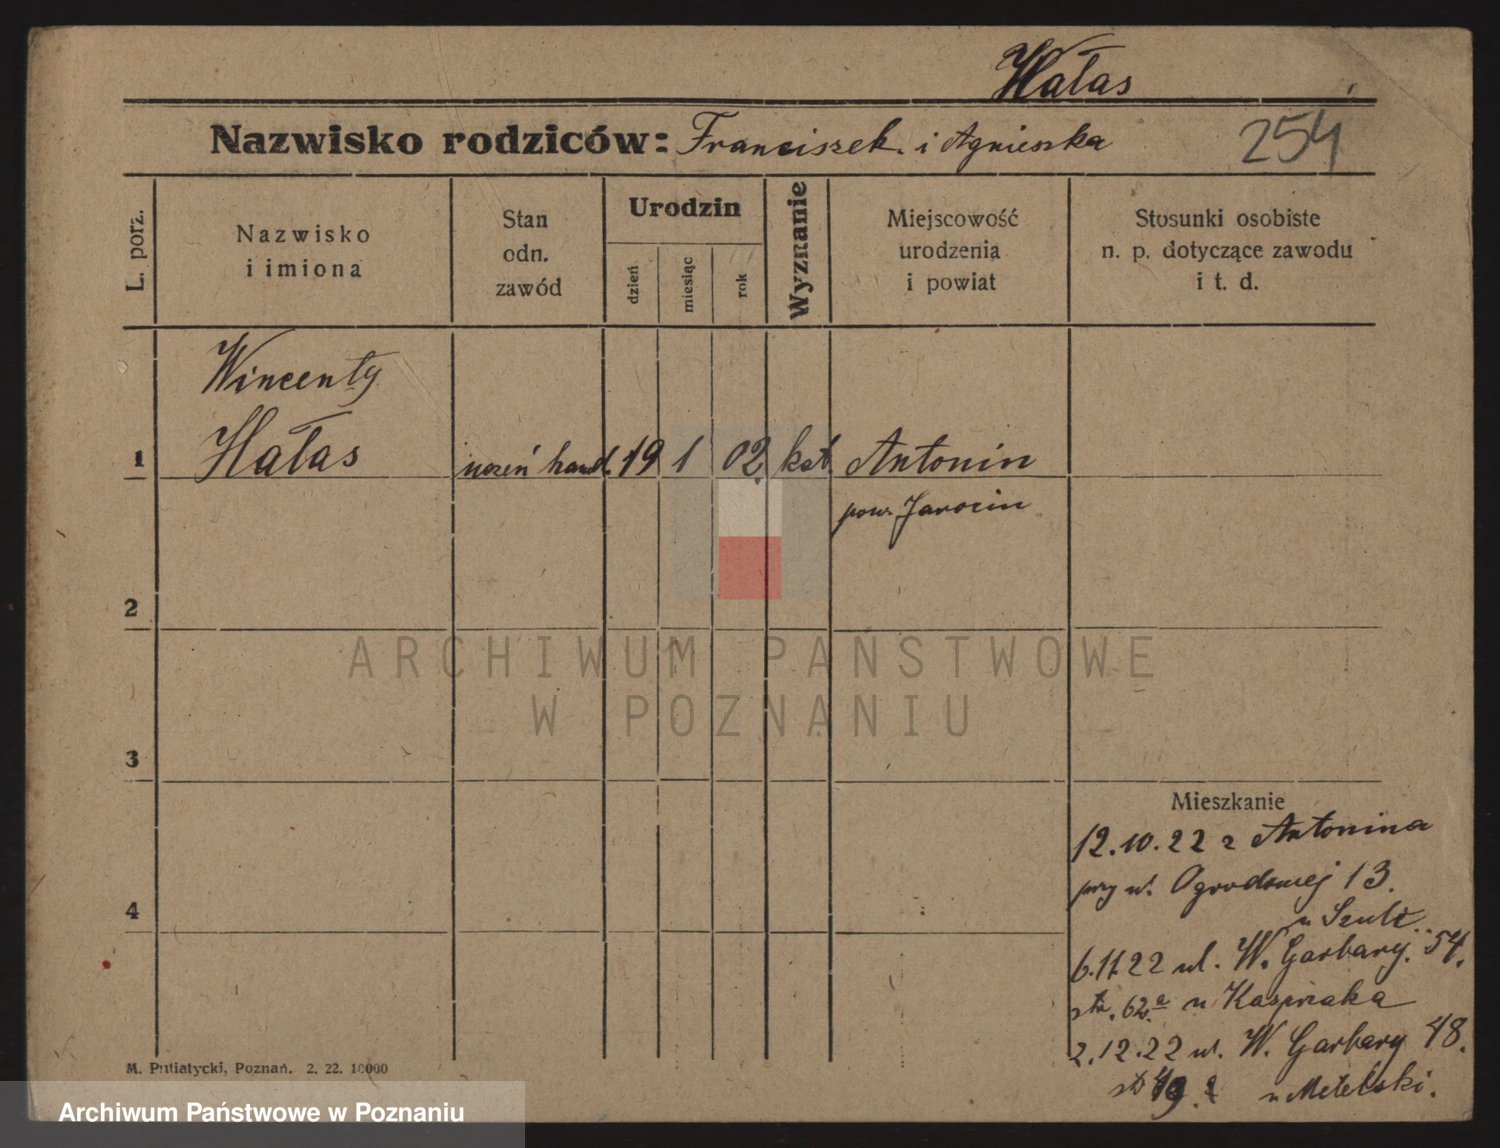 Hałas
Nazwisko rodziców: Franciszek i Agnieszka
254
L. porz.
Nazwisko
i imiona
Stan
odn.
zawód
Urodzin
dzień
miesiąc
rok
Wyznanie
Miejscowość
urodzenia
i powiat
Stosunki osobiste
n. p. dotyczące zawodu
i t. d.
Wincenty
1 Hałas uczeń hand. 19 1 02. kat. Antonin
pow. Jarocin
2
ARCHIWUM PAŃSTWOWE
W POZNANIU
3
Mieszkanie
12.10.22 z Antonina
przy ul. Ogrodowej 13.
4
u Szulc
6.11.22 ul. W. Garbary. 54.
u Kasprzaka
2.12.22 ul. W. Garbary 48.
u Metelski.
M. Putiatycki, Poznań. 2. 22. 10000
Archiwum Państwowe w Poznaniu